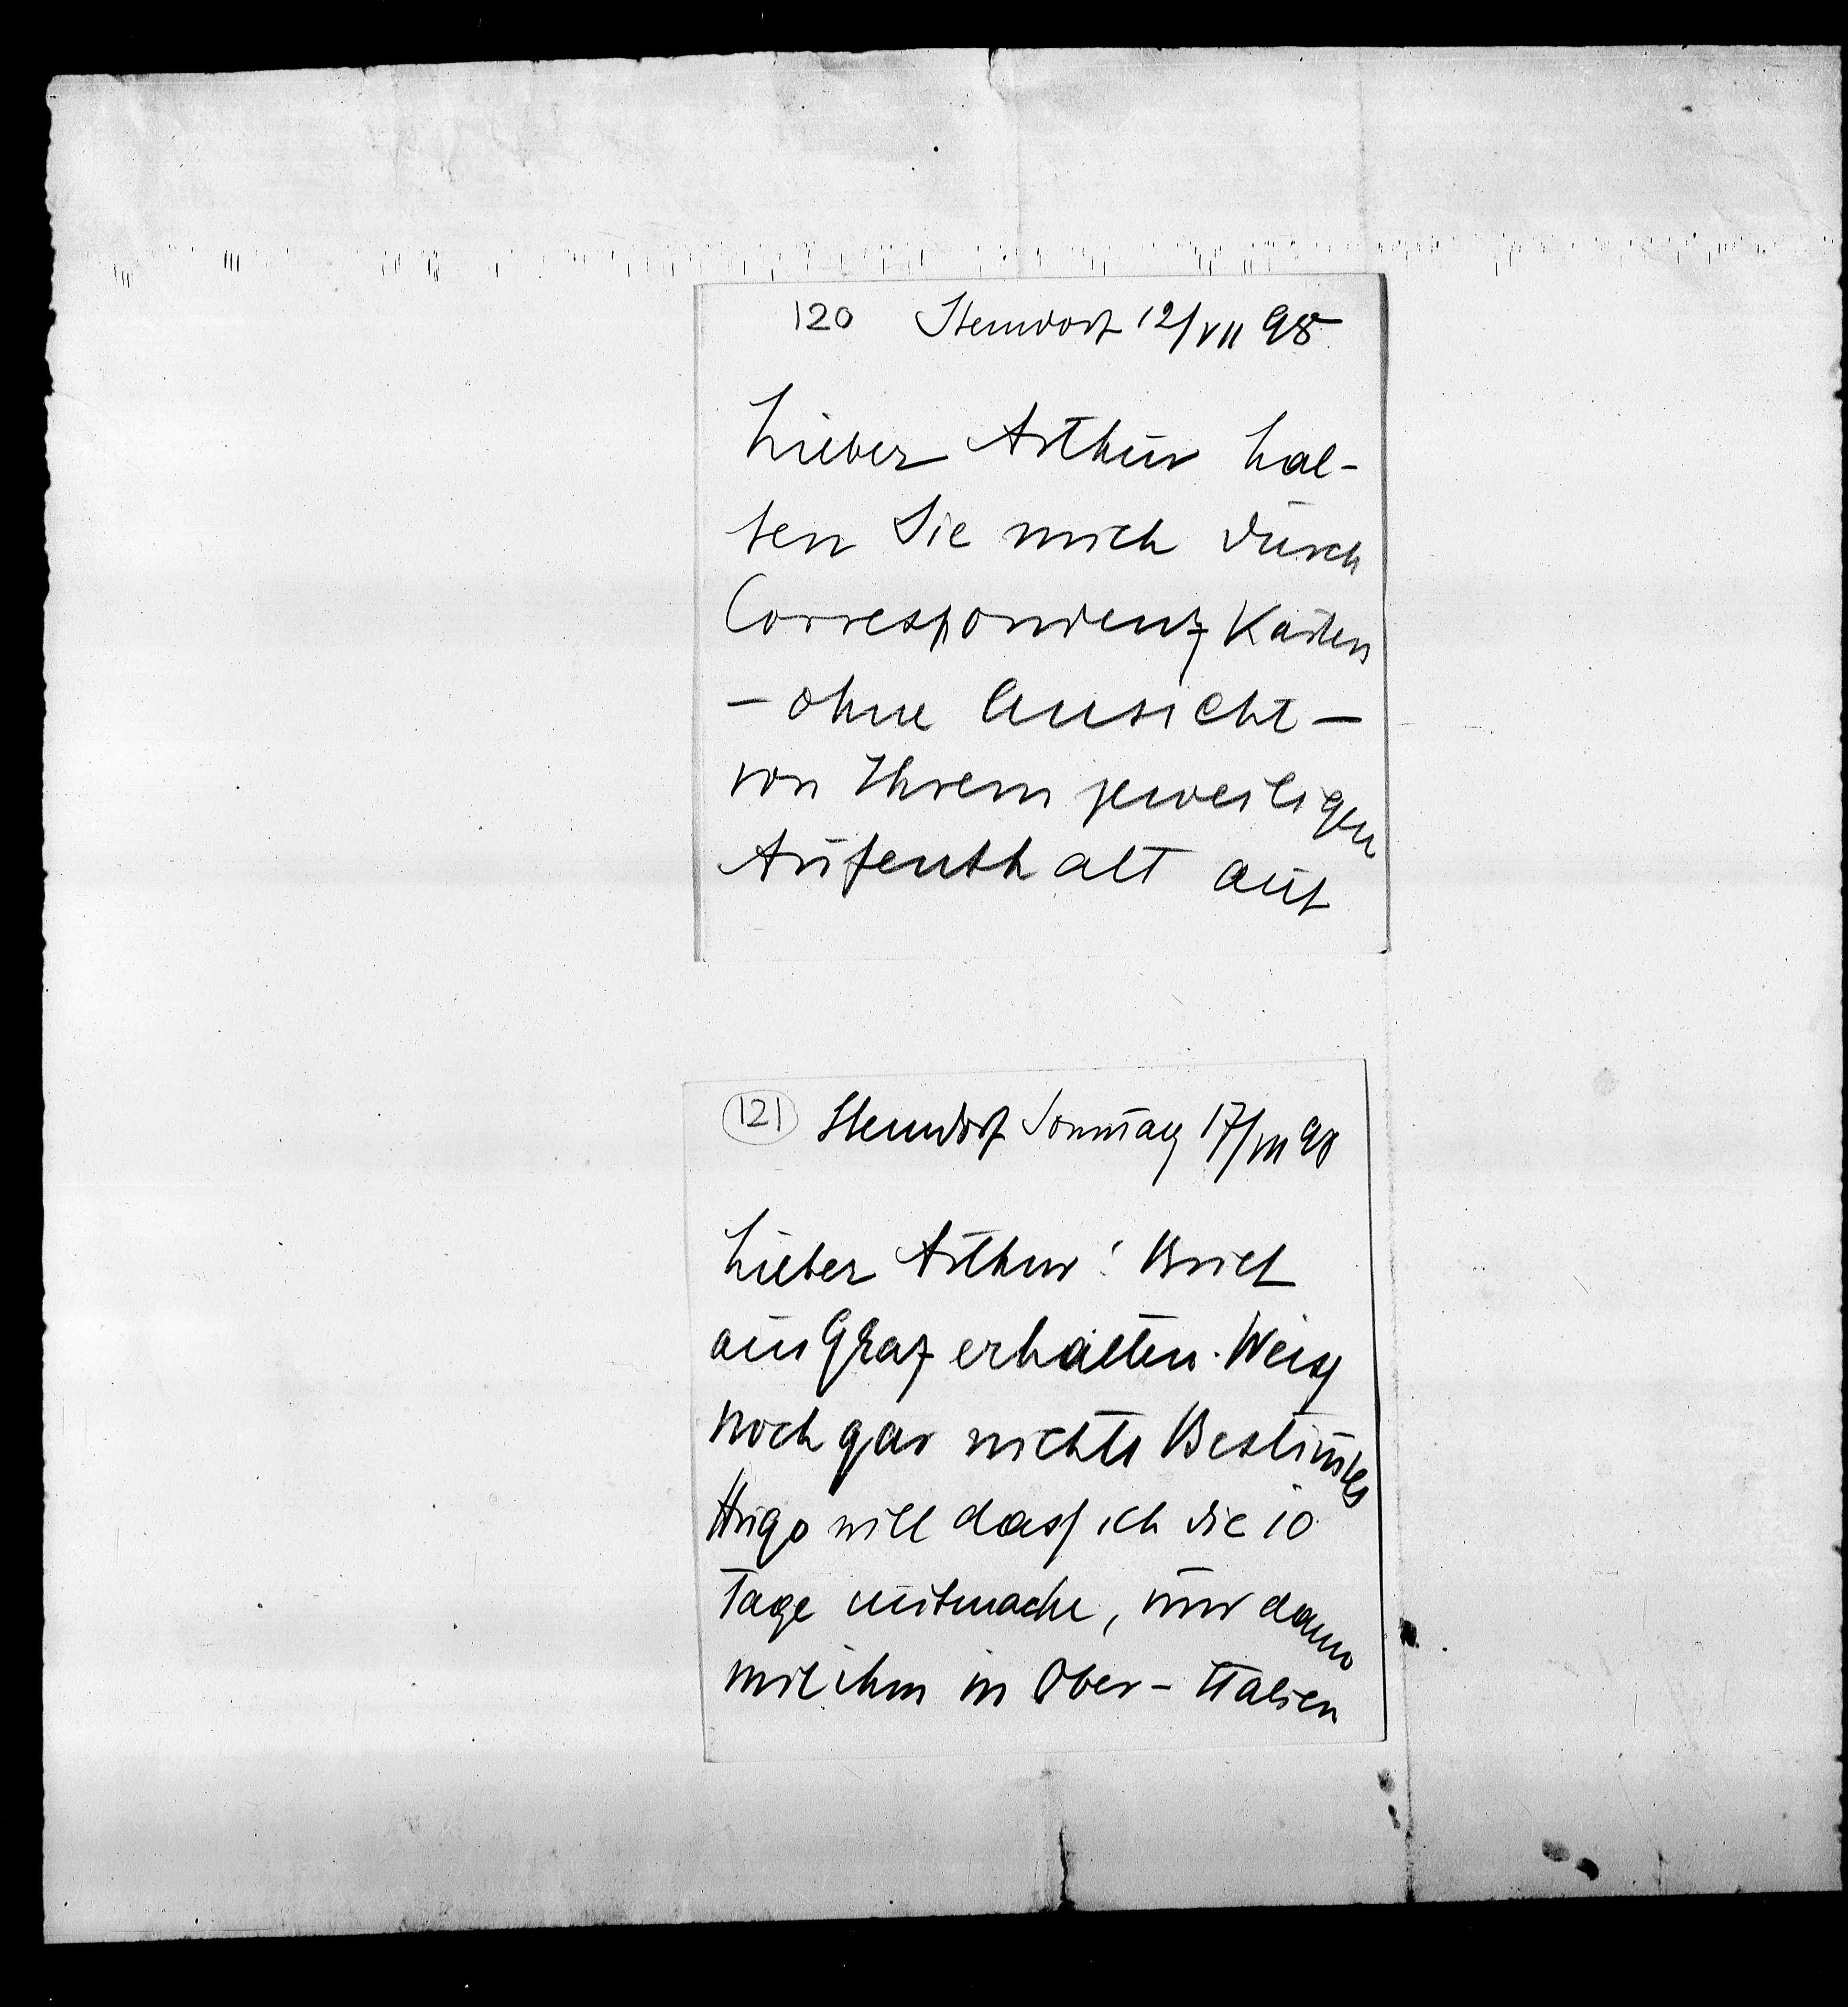 120 Steindorf 12/VII 98
Lieber Arthur hal-
ten Sie mich durch
Correspondenz Karten
– ohne Ansicht –
von Ihrem jeweiligen
Aufenthalt auf
121 Steindorf Sonntag 17/VII 98
Lieber Arthur! Brief
aus Graz erhalten. Weiss
noch gar nichts Bestim̄tes
Hugo will dass ich die 10
Tage mitmache, um dann
mit ihm in Ober-Italien